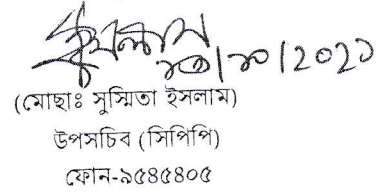 ১০/১০/২০২১
(মোছাঃ সুস্মিতা ইসলাম)
উপসচিব (সিপিপি)
ফোন-৯৫৪৫৪০৫